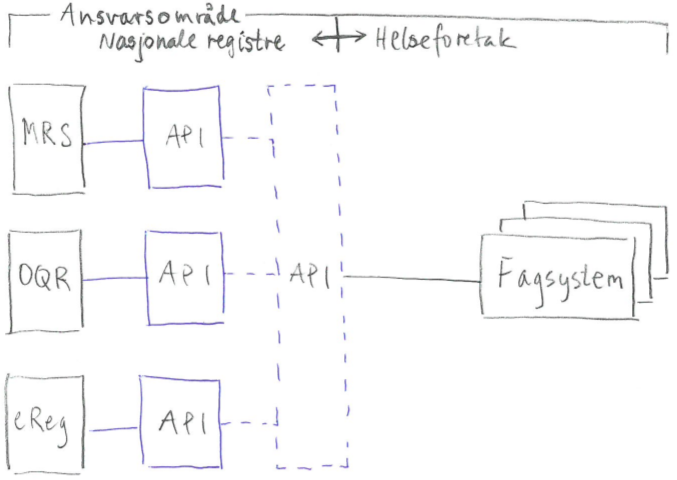 Ansvarsområde
Nasjonale registre ↔ Helseforetak
MRS API
OQR API API Fagsystem
eReg API